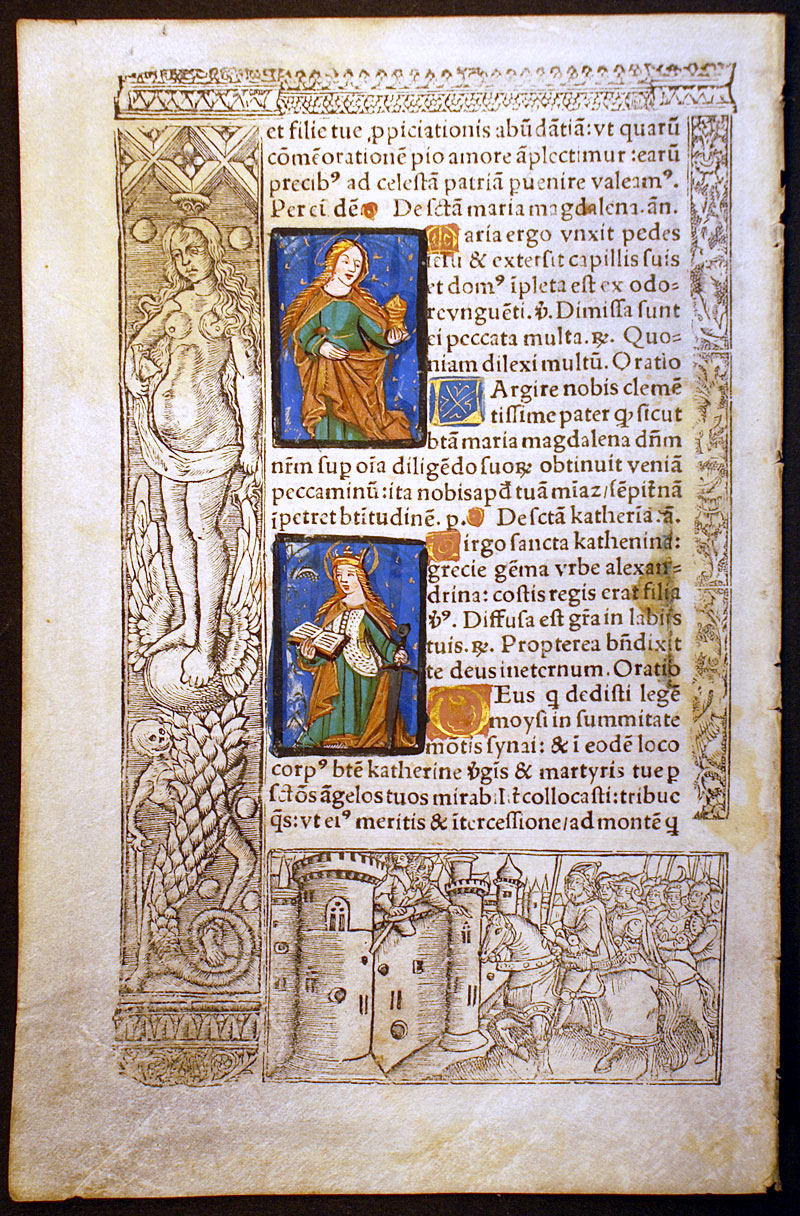 et filie tue ꝓpiciationis abūdātiā: vt quarū
cōmēorationē pio amore āplectimur :earū
precibꝰ ad celestā patriā puenire valeamꝰ.
Per eī dē De sctā maria magdalena. an.
Maria ergo vnxit pedes
iesu & extersit capillis suis
et domꝰ īpleta est ex odo=
re vnguēti. ꝟ. Dimissa sunt
ei peccata multa. ꝶ. Quo=
niam dilexi multū. Oratio
Largire nobis clemē
tissime pater qͥ sicut
btā maria magdalena dn̄m
nr̄m sup oīa diligēdo suoꝶ obtinuit veniā
peccaminū: ita nobis apđ tuā mīaz / sēpit̄nā
īpetret btītudinē. p. De sctā katherīa. ā.
Virgo sancta kathenina:
grecie gēma vrbe alexan=
drina: costis regis erat filia
ꝟꝰ. Diffusa est gr̄a in labiis
tuis. ꝶ. Propterea bn̄dixit
te deus ineternum. Oratio
Deus q dedisti legē
moysi in summitate
mōtis synai: & ī eodē loco
corpꝰ btē katherine ꝟgīs & martyris tue p
sctōs āgelos tuos mirabilit̄ collocasti: tribue
q̄s: vt eiꝰ meritis & ītercessione / ad montē q